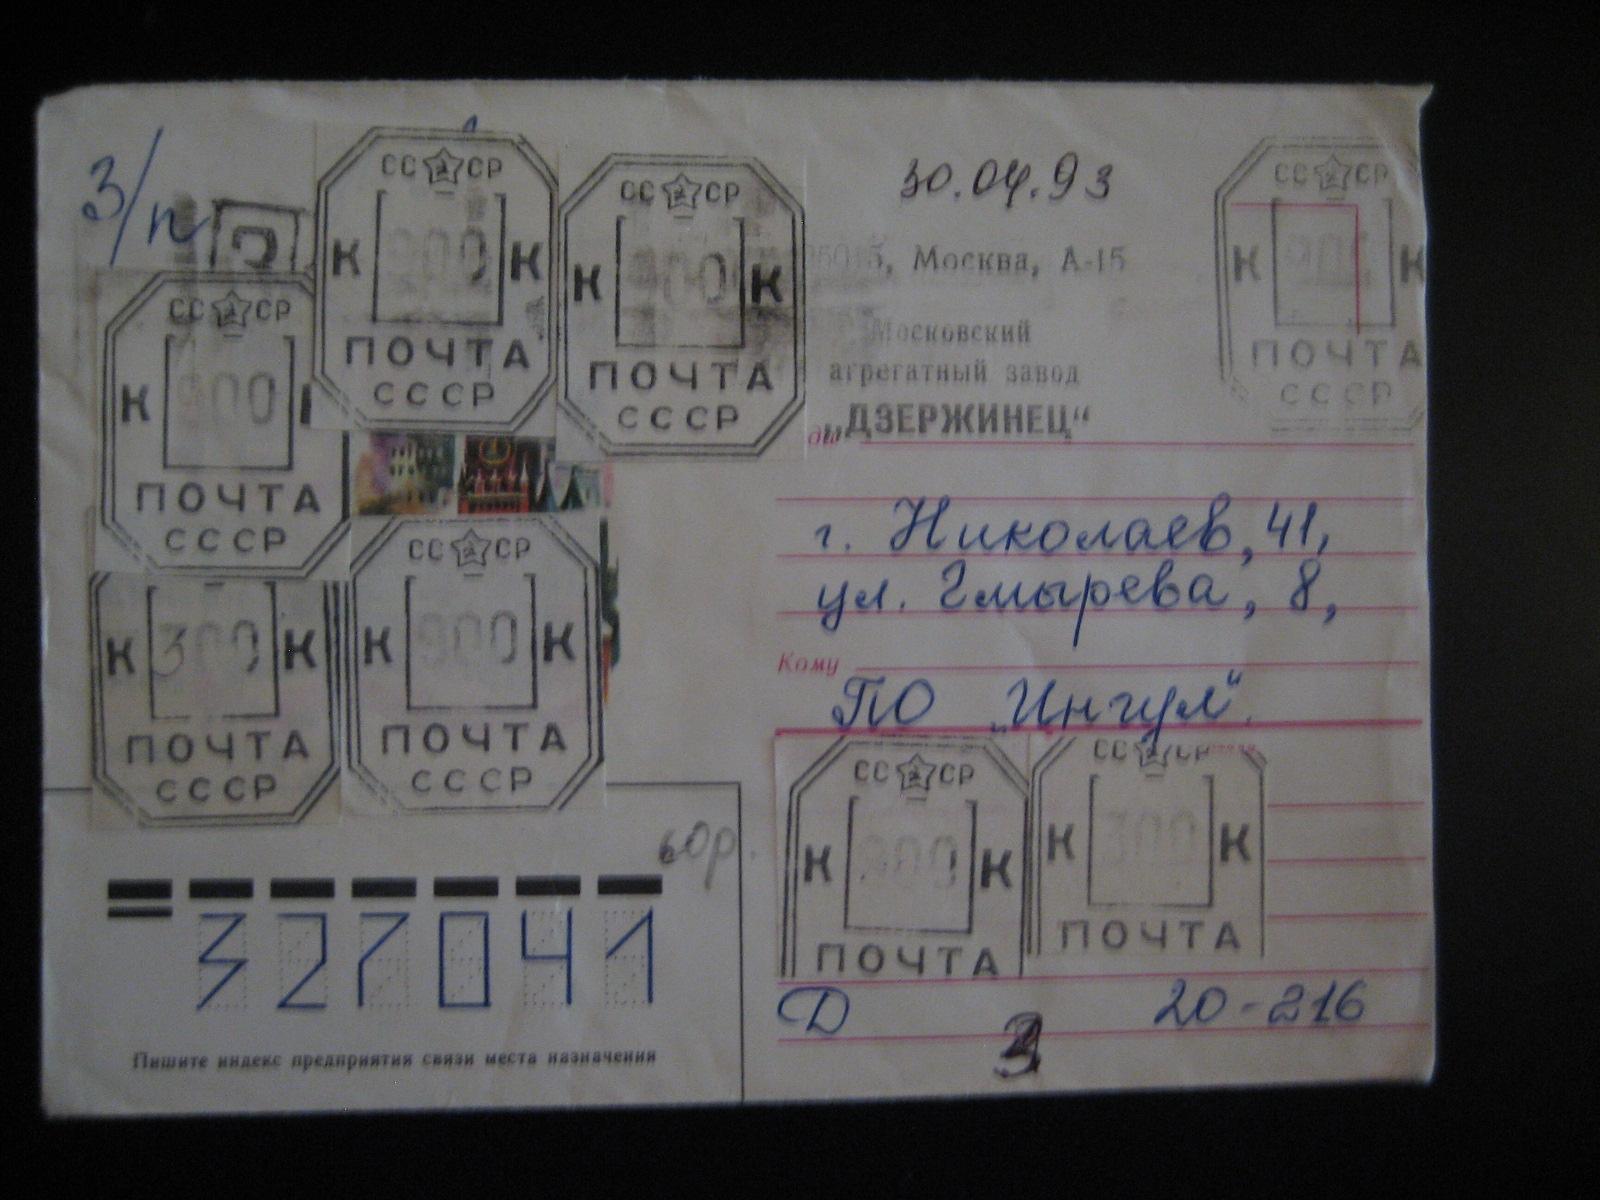 З/п
30.04.93
СССР
К 900 К
ПОЧТА
СССР
СССР
К 900 К
ПОЧТА
СССР
СССР
К К
ПОЧТА
СССР
Москва, А-15
Московский
агрегатный завод
„ДЗЕРЖИНЕЦ“
СССР
К 900
ПОЧТА
СССР
г. Николаев, 41,
ул. Гмырева, 8,
Кому
ПО „Ингул“.
К 300 К
ПОЧТА
СССР
СССР
К 900 К
ПОЧТА
СССР
СССР
К 900 К
ПОЧТА
СССР
К 300 К
ПОЧТА
60р.
327041
Пишите индекс предприятия связи места назначения
Д 20-216